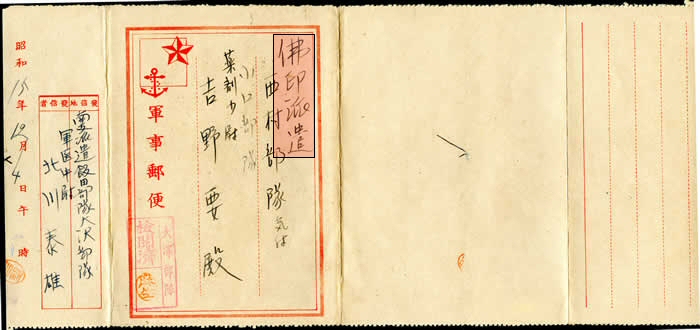 佛印派遣
西村部隊気付
小口部隊
薬剤少尉
吉野要殿
軍事郵便
検閲済
大津部隊
發信地發信者
南支派遣飯田部隊大沢部隊
軍医中尉
北川泰雄
昭和15年12月4日午時